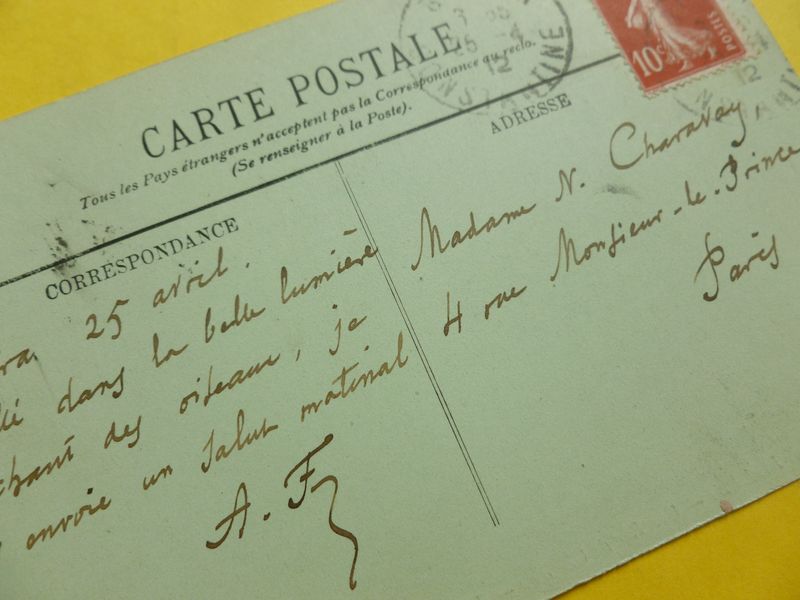 CARTE POSTALE
Tous les Pays étrangers n'acceptent pas la Correspondance au recto.
(Se renseigner à la Poste).
CORRESPONDANCE
ADRESSE
25 avril.
dans la belle lumière
chant des oiseaux, je
envoie un salut matinal
A. F
Madame N. Charavay
4 rue Monsieur-le-Prince
Paris
10c
POSTES
25 -4
12
12